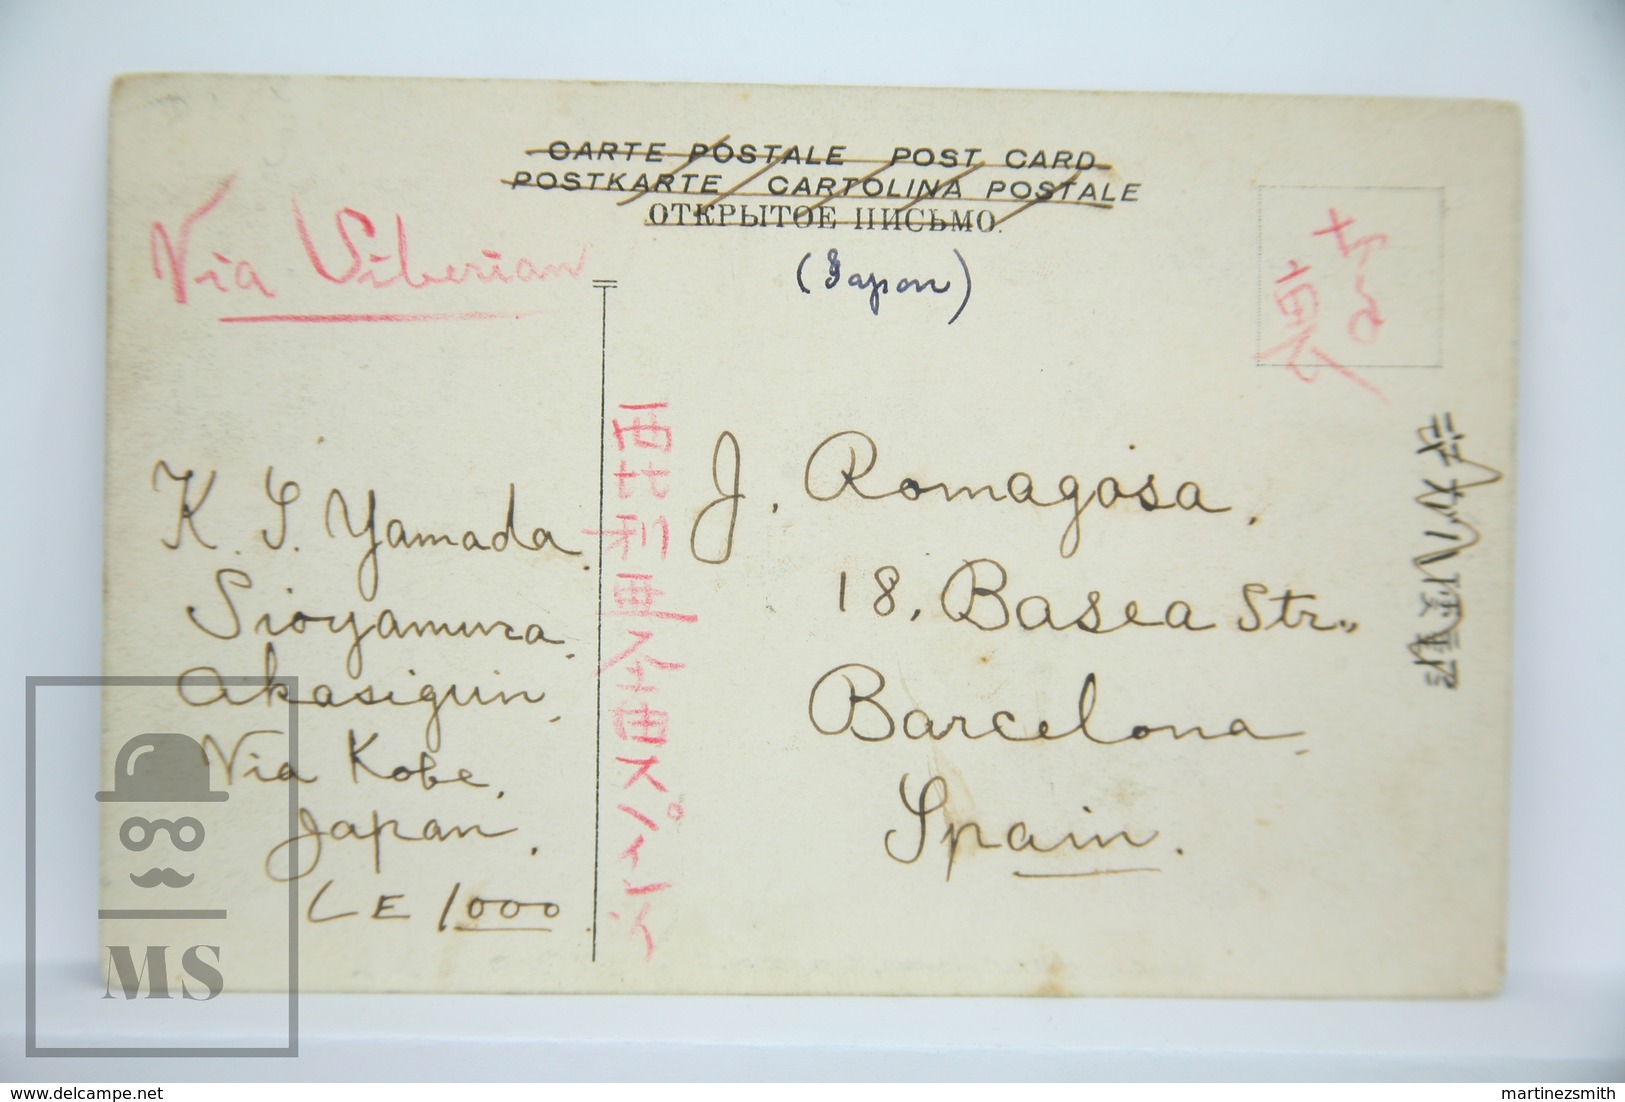 CARTE POSTALE POST CARD
POSTKARTE CARTOLINA POSTALE
ОТКРЫТОЕ ПИСЬМО.
(Japon)
Via Siberian
西比利亜全由スペイン行
K. S. Yamada.
Sioyamura.
Akasigun.
Via Kobe.
Japan.
LE 1000
J. Romagosa.
18, Basea Str..
Barcelona.
Spain.
MS
delcampe.net
martinezsmith